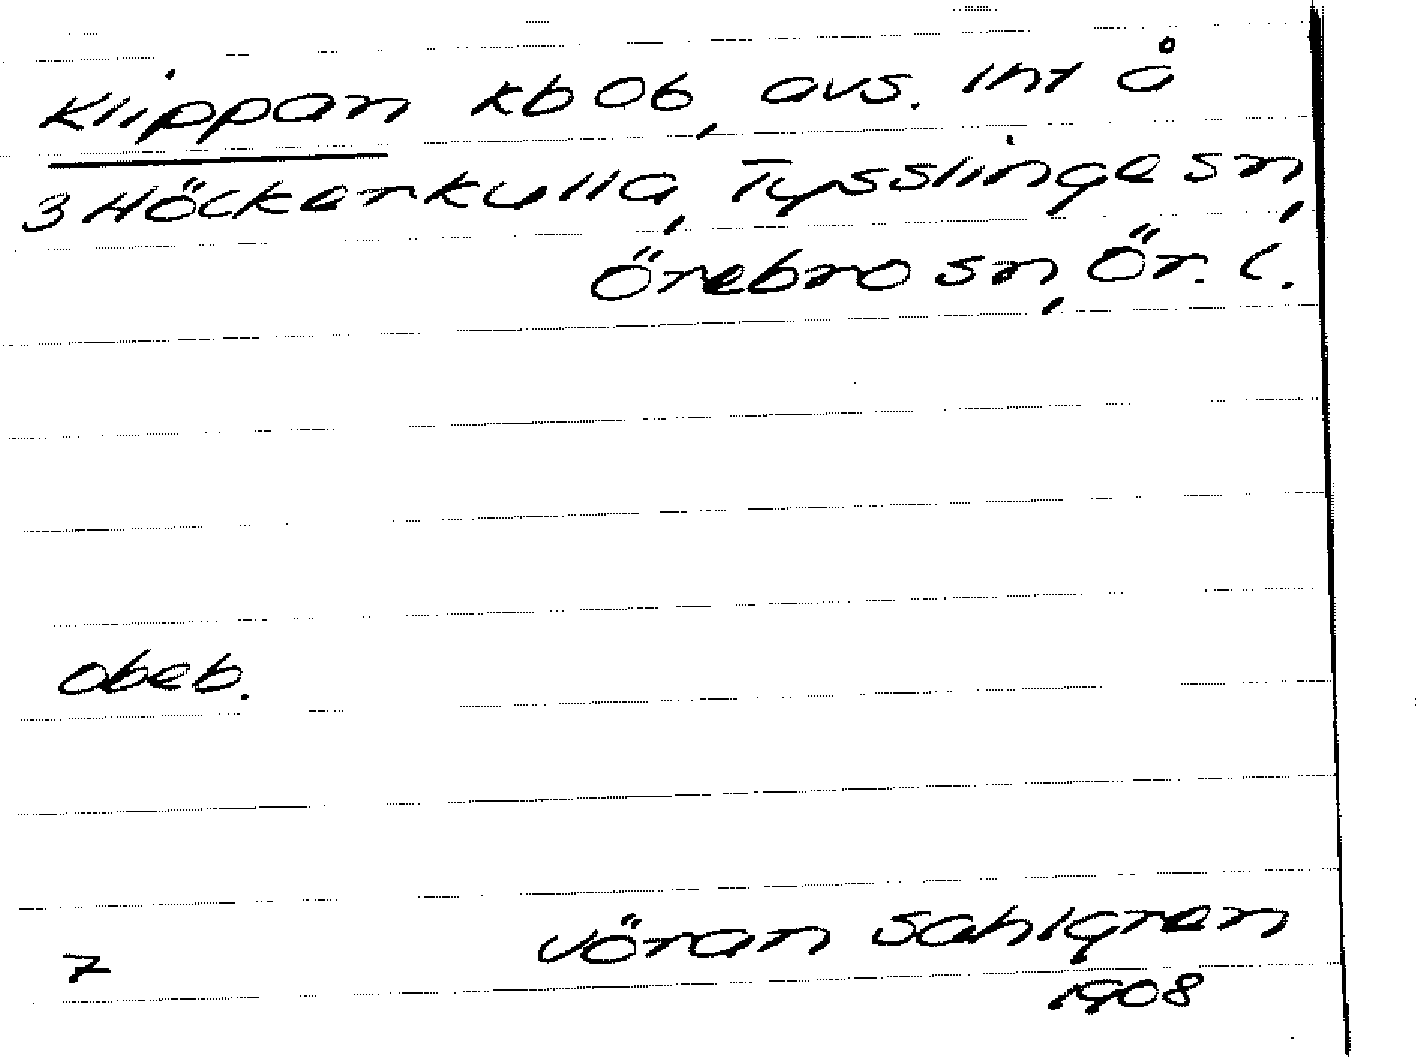 Klippan kb Ob, avs. int å
3 Höckerkulla, Tysslinge sn,
Örebro sn, Ör. l.
obeb.
7 Jöran Sahlgren
1908